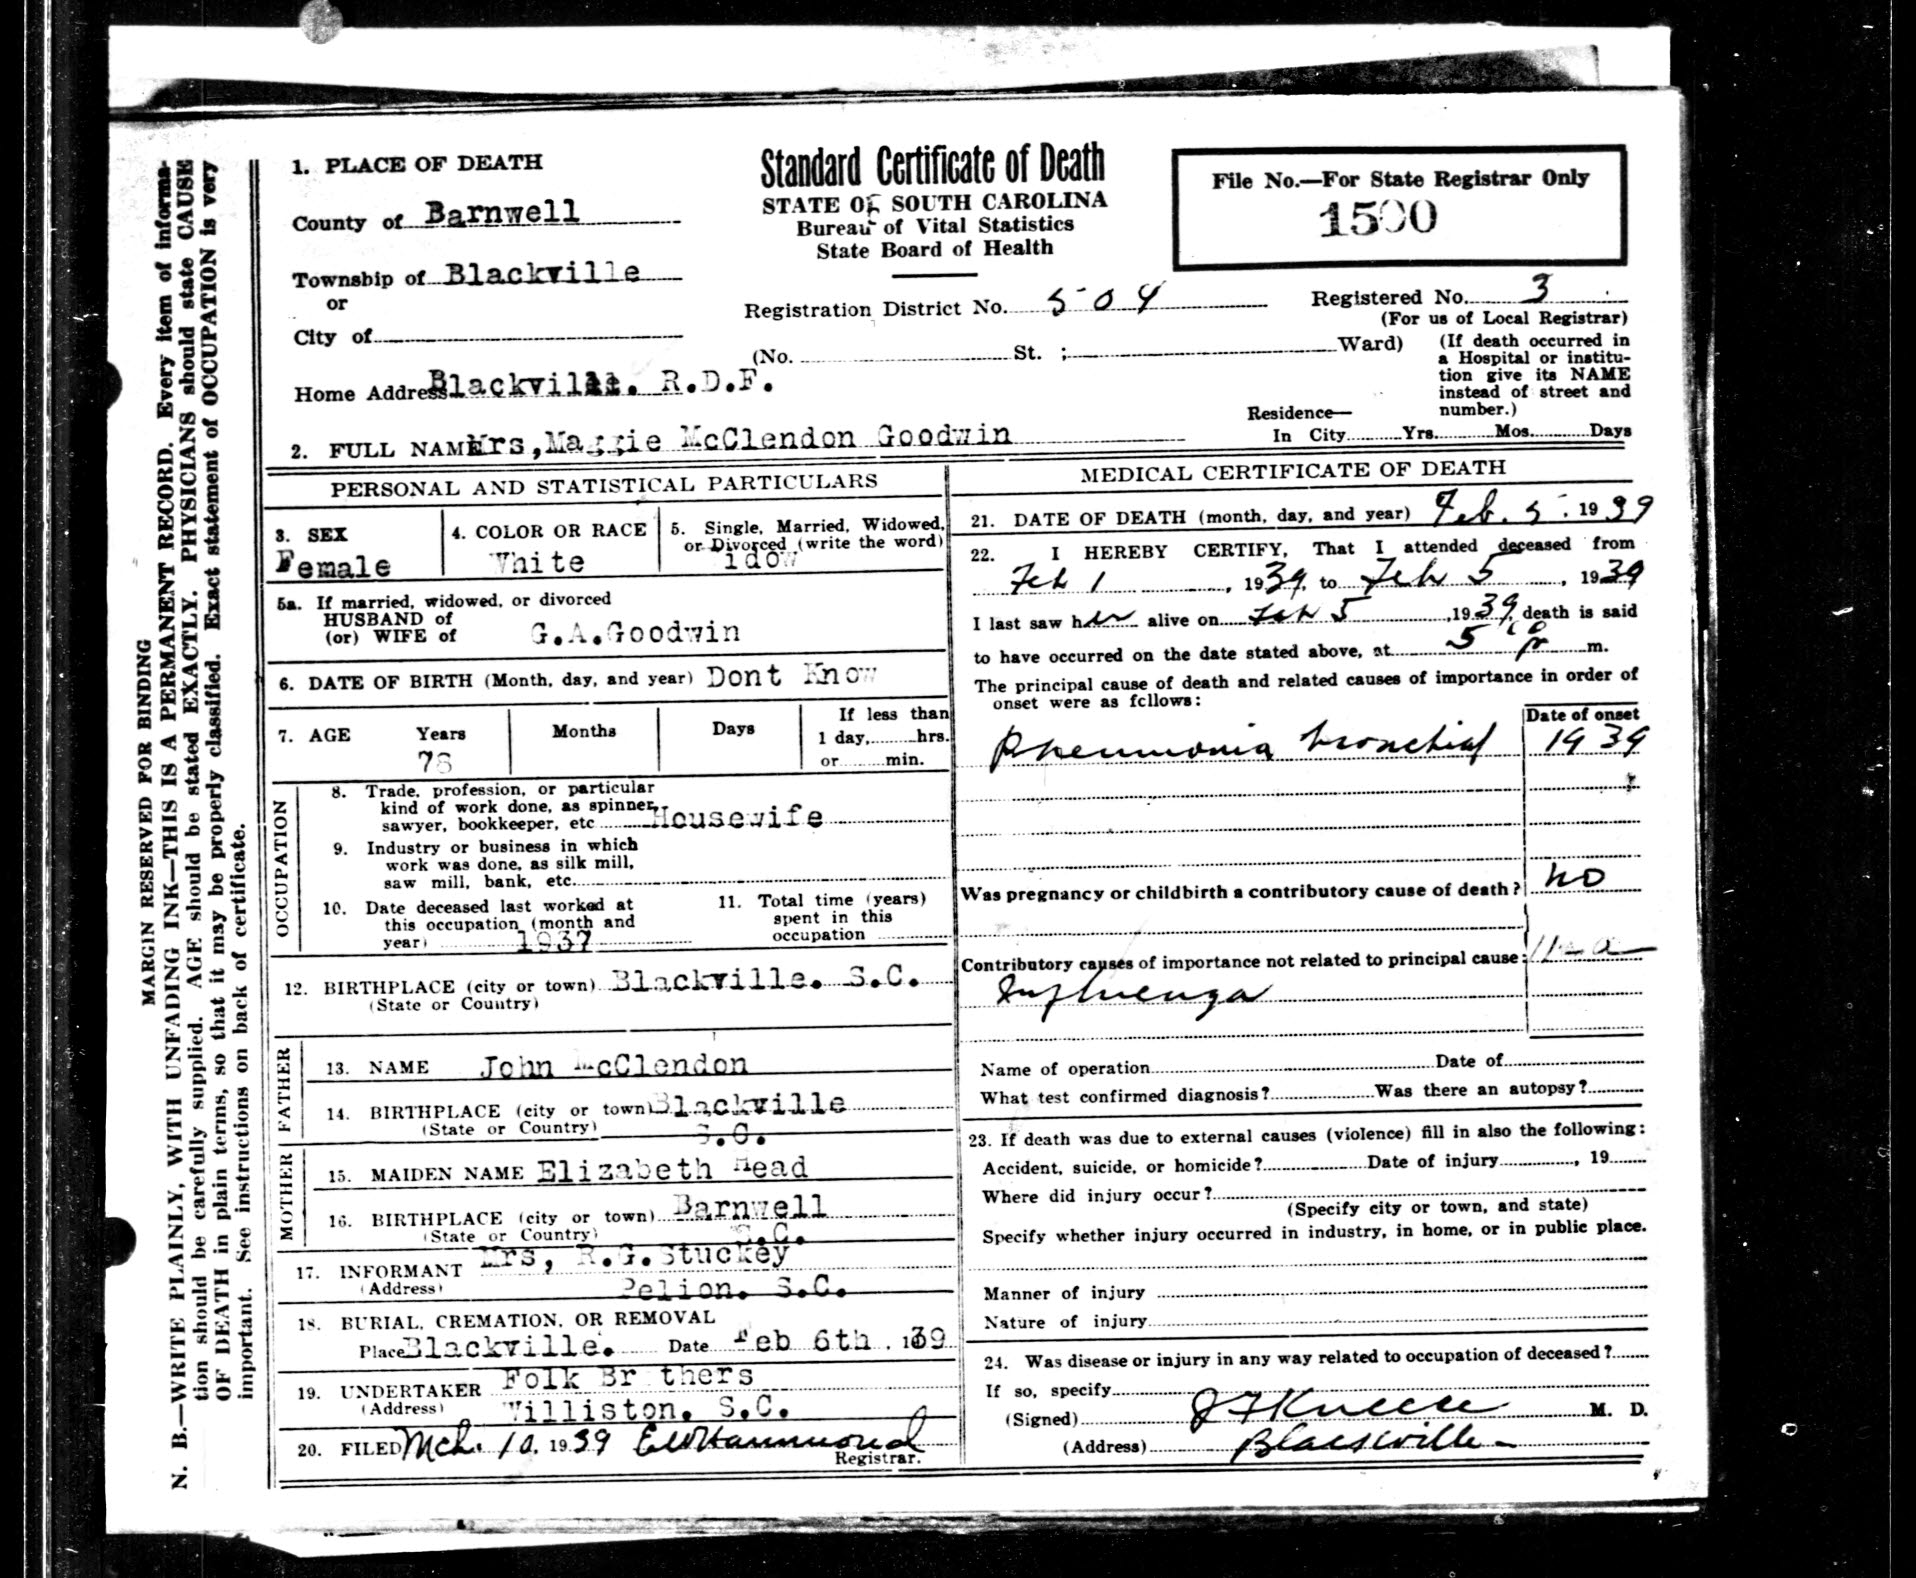 MARGIN RESERVED FOR BINDING
N. B.—WRITE PLAINLY, WITH UNFADING INK—THIS IS A PERMANENT RECORD. Every item of informa-
tion should be carefully supplied. AGE should be stated EXACTLY. PHYSICIANS should state CAUSE
OF DEATH in plain terms, so that it may be properly classified. Exact statement of OCCUPATION is very
important. See instructions on back of certificate.
Standard Certificate of Death
STATE OF SOUTH CAROLINA
Bureau of Vital Statistics
State Board of Health
File No.—For State Registrar Only
1500
1. PLACE OF DEATH
County of Barnwell
Township of Blackville
or
City of
Registration District No. 504
Registered No. 3
(For us of Local Registrar)
(No. St. ; Ward)
(If death occurred in
a Hospital or institu-
tion give its NAME
instead of street and
number.)
Home Address Blackville. R.D.F.
Residence—
In City Yrs. Mos. Days
2. FULL NAME Mrs,Maggie McClendon Goodwin
PERSONAL AND STATISTICAL PARTICULARS
3. SEX
Female
4. COLOR OR RACE
White
5. Single, Married, Widowed,
or Divorced (write the word)
idow
5a. If married, widowed, or divorced
HUSBAND of
(or) WIFE of G.A.Goodwin
6. DATE OF BIRTH (Month, day, and year) Dont Know
7. AGE Years Months Days
If less than
1 day, hrs.
or min.
OCCUPATION
8. Trade, profession, or particular
kind of work done, as spinner,
sawyer, bookkeeper, etc. Housewife
9. Industry or business in which
work was done, as silk mill,
saw mill, bank, etc.
10. Date deceased last worked at
this occupation (month and
year) 1937
11. Total time (years)
spent in this
occupation
12. BIRTHPLACE (city or town) Blackville. S.C.
(State or Country)
FATHER
13. NAME John McClendon
14. BIRTHPLACE (city or town) Blackville
(State or Country) S.C.
MOTHER
15. MAIDEN NAME Elizabeth Head
16. BIRTHPLACE (city or town) Barnwell
(State or Country) S.C.
17. INFORMANT Mrs, R.G.Stuckey
(Address) Pelion. S.C.
18. BURIAL, CREMATION, OR REMOVAL
Place Blackville. Date Feb 6th. 1939
19. UNDERTAKER Folk Br thers
(Address) Williston. S.C.
20. FILED Mch. 10, 1939 E W Hammond
Registrar.
MEDICAL CERTIFICATE OF DEATH
21. DATE OF DEATH (month, day, and year) Feb. 5. 1939
22. I HEREBY CERTIFY, That I attended deceased from
Feb 1, 1939, to Feb 5, 1939
I last saw her alive on Feb 5, 1939, death is said
to have occurred on the date stated above, at 5 p m.
The principal cause of death and related causes of importance in order of
onset were as follows:
Date of onset
Pneumonia bronchial 1939
Was pregnancy or childbirth a contributory cause of death? no
Contributory causes of importance not related to principal cause:
Influenza
Name of operation Date of
What test confirmed diagnosis? Was there an autopsy?
23. If death was due to external causes (violence) fill in also the following:
Accident, suicide, or homicide? Date of injury , 19
Where did injury occur?
(Specify city or town, and state)
Specify whether injury occurred in industry, in home, or in public place.
Manner of injury
Nature of injury
24. Was disease or injury in any way related to occupation of deceased?
If so, specify
(Signed) J F Kneece M. D.
(Address) Blackville